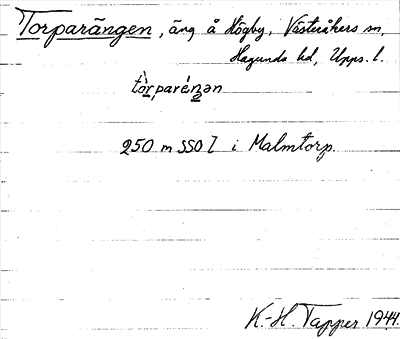 Torparängen, äng å Högby, Västeråkers sn,
Hagunda hd, Upps. l.
tòrparéŋən
250 m SSO I i Malmtorp.
K.-H. Tapper 1944.